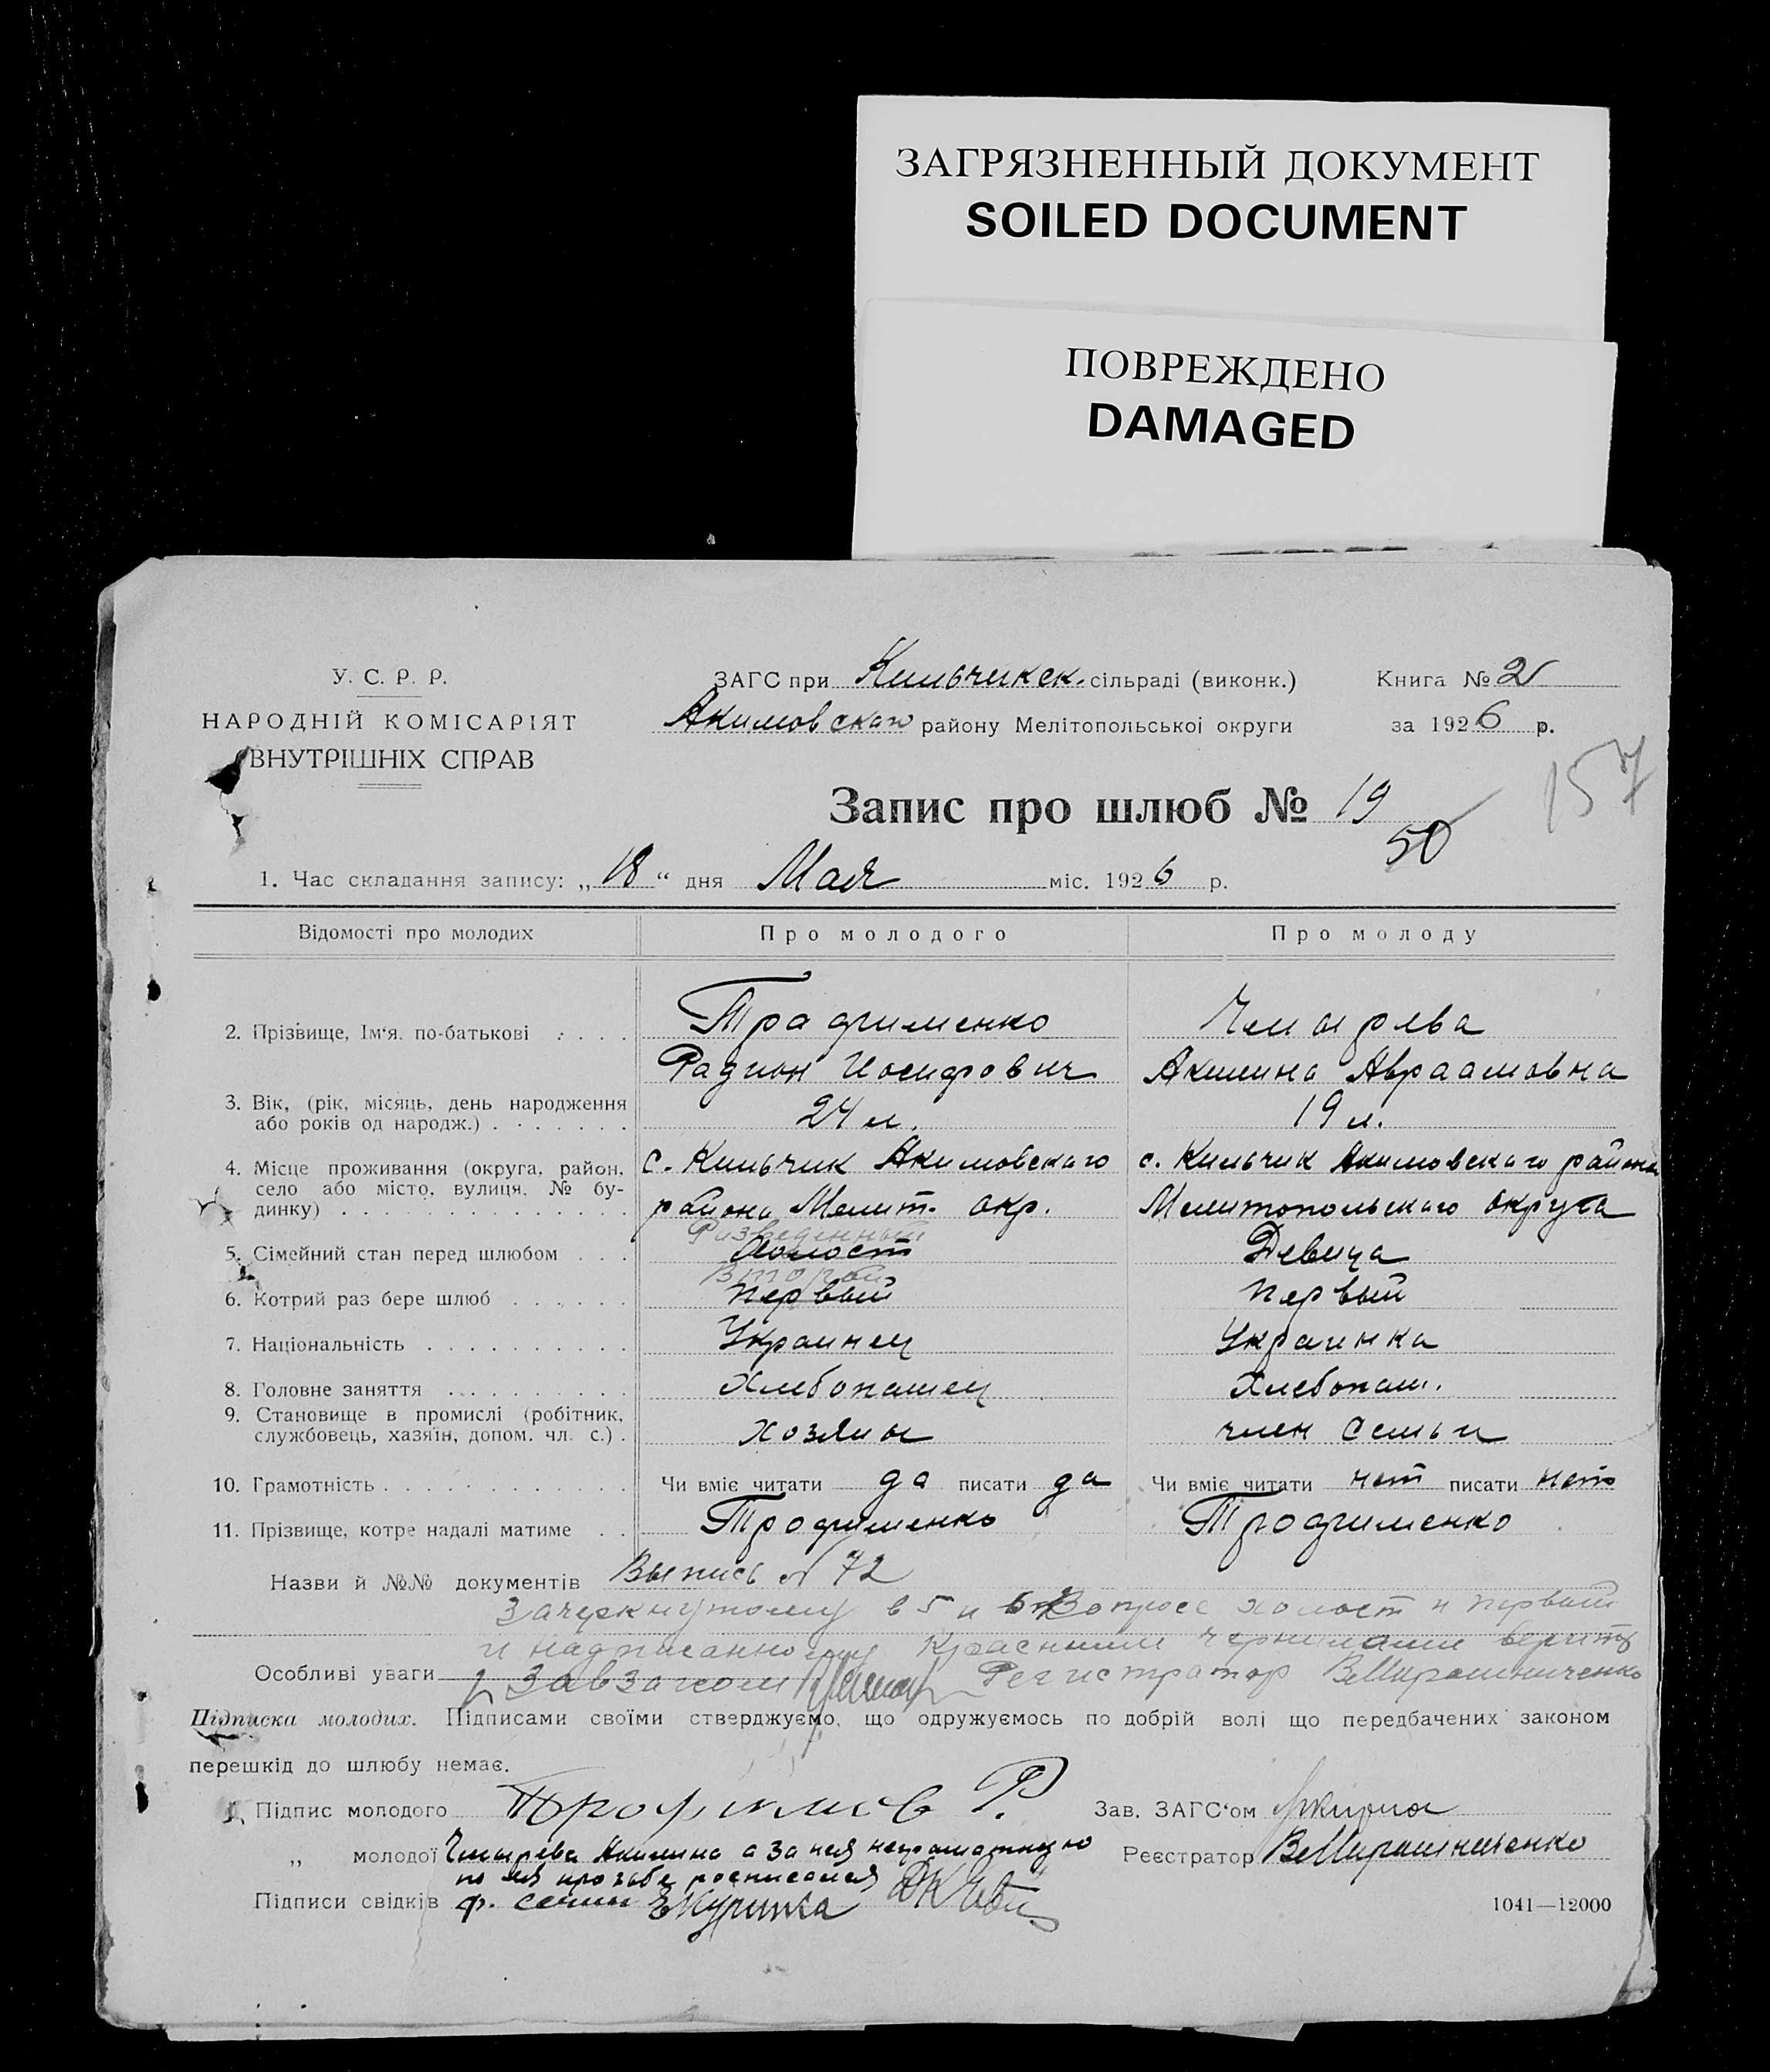 ЗАГРЯЗНЕННЫЙ ДОКУМЕНТ
SOILED DOCUMENT
ПОВРЕЖДЕНО
DAMAGED
У. С. Р. Р.
НАРОДНІЙ КОМІСАРІЯТ
ВНУТРІШНІХ СПРАВ
ЗАГС при Кильчикск. сільраді (виконк.)
Акимовскаго району Мелітопольської округи
Книга № 2
за 1926 р.
157
Запис про шлюб № 19
50
1. Час складання запису: „18“ дня Мая міс. 1926 р.
Відомості про молодих Про молодого Про молоду
2. Прізвище, Ім'я, по-батькові Трафименко Чмырева
Радион Иосифович Акилина Авраамовна
3. Вік, (рік, місяць, день народження
або років од народж.) 24 л. 19 л.
4. Місце проживання (округа, район, с. Кильчик Акимовскаго с. Кильчик Акимовскаго района
село або місто, вулиця, № бу-
динку) района Мелит. окр. Мелитопольскаго округа
Разведенный
5. Сімейний стан перед шлюбом Холост Девица
Второй
6. Котрий раз бере шлюб первый первый
7. Національність Украинец Украинка
8. Головне заняття Хлебопашец Хлебопаш.
9. Становище в промислі (робітник,
службовець, хазяїн, допом. чл. с.) хозяин член семьи
10. Грамотність Чи вміє читати да писати да Чи вміє читати нет писати нет
11. Прізвище, котре надалі матиме Трофименко Трофименко
Назви й №№ документів Выпись № 72
Зачеркнутому в 5 и 6 Вопросе холост и первый
и надписанному красными чернилами верить
Особливі уваги Завзагсом Регистратор ВМирошниченко
Підписка молодих. Підписами своїми стверджуємо, що одружуємось по добрій волі що передбачених законом
перешкід до шлюбу немає.
Підпис молодого Трофимов Р. Зав. ЗАГС'ом
„ молодої Чмырева Акилина а за нея неграмотную Реєстратор ВМирошниченко
по ея прозьбе росписался
Підписи свідків
1041—12000